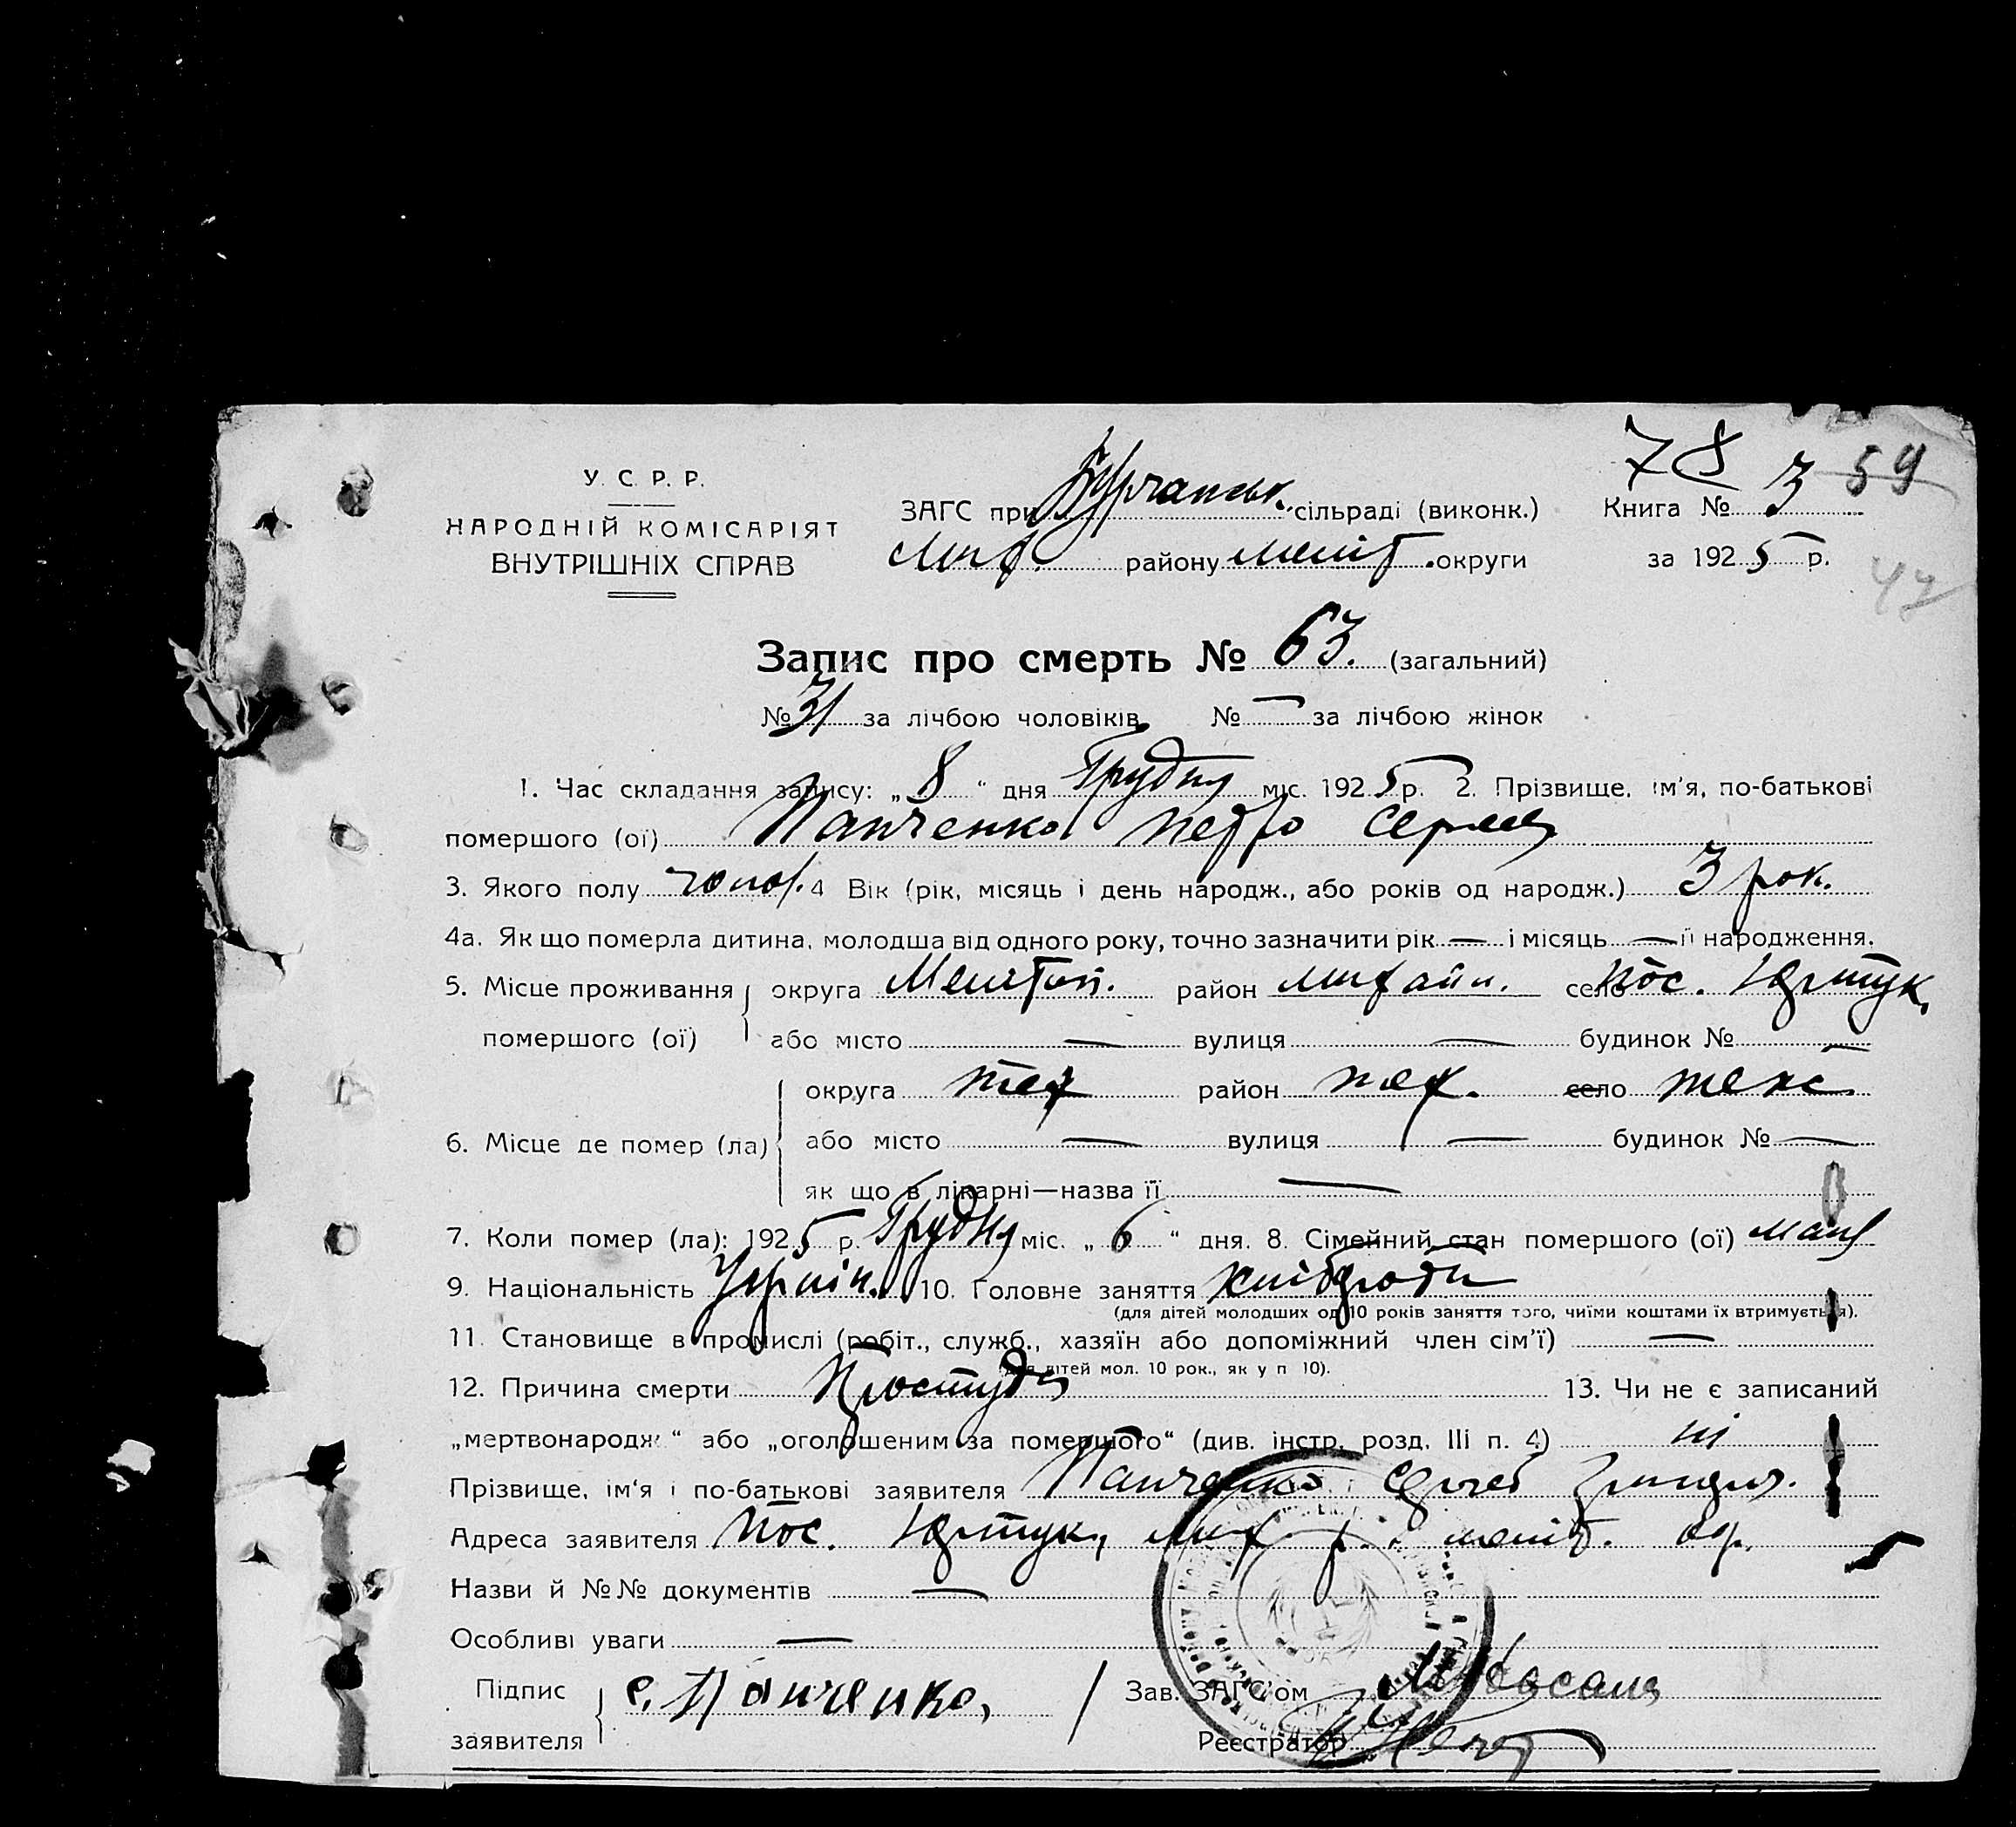 78
У. С. Р. Р.
НАРОДНІЙ КОМІСАРІЯТ
ВНУТРІШНІХ СПРАВ
ЗАГС при Бурчанськ. сільраді (виконк.)
Мих. району Меліт. округи
Книга № 3 59
за 1925 р.
47
Запис про смерть № 63. (загальний)
№ 31 за лічбою чоловіків № — за лічбою жінок
1. Час складання запису: „ 8 " дня Грудня міс. 1925 р. 2. Прізвище, ім'я, по-батькові
помершого (ої) Панченко Петро Сергеев
3. Якого полу чолов. 4 Вік (рік, місяць і день народж., або років од народж.) 3 рок.
4а. Як що померла дитина, молодша від одного року, точно зазначити рік — і місяць — її народження.
5. Місце проживання округа Мелітоп. район Михайл. село пос. Юртук,
помершого (ої) або місто — вулиця — будинок № —
округа теж район теж. село теж
6. Місце де помер (ла) або місто — вулиця — будинок № —
як що в лікарні—назва її —
7. Коли помер (ла): 1925 р. Грудня міс. „ 6 " дня. 8. Сімейний стан помершого (ої)
9. Національність Україн. 10. Головне заняття хлібороб
(для дітей молодших од 10 років заняття того, чиїми коштами їх втримується).
11. Становище в промислі (робіт., служб., хазяїн або допоміжний член сім'ї) —
(для дітей мол. 10 рок., як у п 10).
12. Причина смерти Простуда 13. Чи не є записаний
„мертвонародж." або „оголошеним за помершого" (див. інстр. розд. III п. 4) ні
Прізвище, ім'я і по-батькові заявителя Панченко Сергей Григор.
Адреса заявителя пос. Юртук, Мих. р. Меліт. окр.
Назви й №№ документів —
Особливі уваги —
Підпис
заявителя С. Панченко,
Зав. ЗАГС'ом
Реєстратор